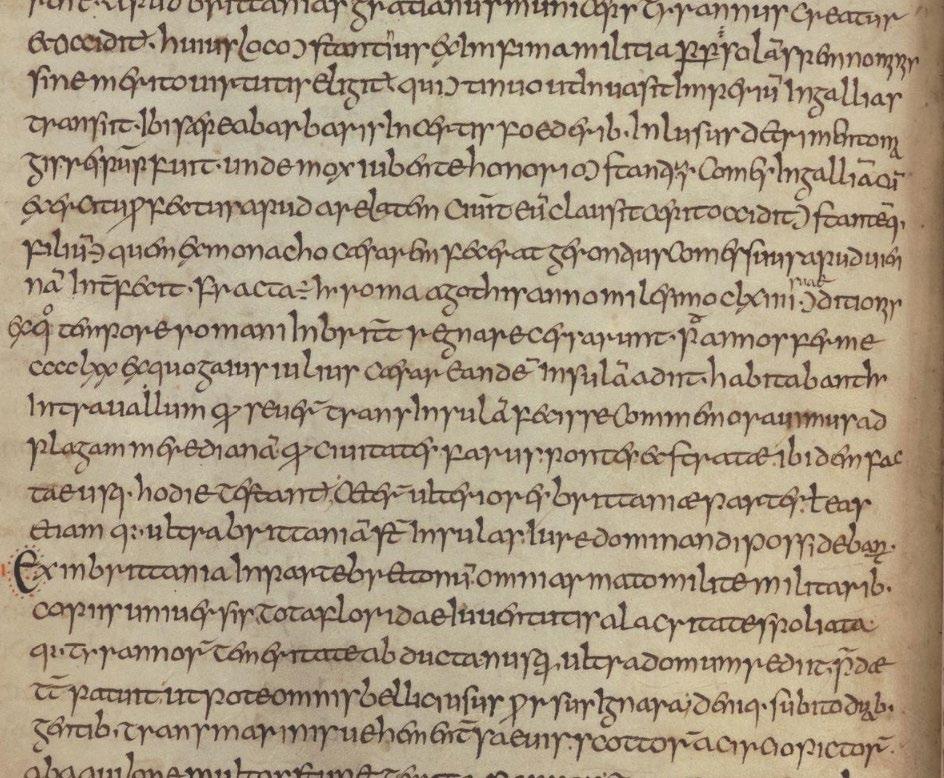 runt. Apud brittanias gratianus municeps tyrannus creatur
et occidit̃. huius loco ɔstantinus ex infima militia ꝓpt̃ solā spem nominis
sine merito uirtutis eligit̃. qui ɔtinuo ut inuasit imperiū in gallias
transiit. ibi saepe a barbaris incertis foederib. inlusus detrimento ma
gis reipuƀ fuit. unde mox iubente honorio ɔstantius comes in galliā cū
exercitu ꝓfectus apud arelatem ciuit̃ eū clausit cepit occidit ɔstanteq;
filiū quem ex monacho caesarem fecerat gerontius comes suus apud uien
nā int̃fecit. fracta ÷ roma a gothis anno milesimo clxiiii suae ɔditionis
ex qͦ tempore romani in britt̃ regnare cessarunt. p̃ annos ferme
cccclxx ex quo gaius iulius caesar eandē insulā adiit. habitabant ħ
intra uallum qđ seuer̃ trans insulā fecisse commemorauimus ad
plagam meredianā qđ ciuitates farus pontes et stratae ibidem fac
tae usq; hodie testant̃. Ceter̃ ulteriores brittaniae partes ł eas
etiam q; ultra brittaniā st̃ insulas iure dominandi possidebant.
Ex in brittania in parte brettonū omni armato milite militarib.
copiis uniuersis tota floridae iuuentutis alacritate spoliata
q; tyrannor̃ temeritate abducta nusq̃ ultra domum rediit. p̃dae
tt̃ patuit utpote omnis bellici usus ꝓrsus ignara; deniq. subito duab.
gentib. transmarinis uehement̃ saeuis. scottor̃ a circio pictor̃
ab aquilone multos